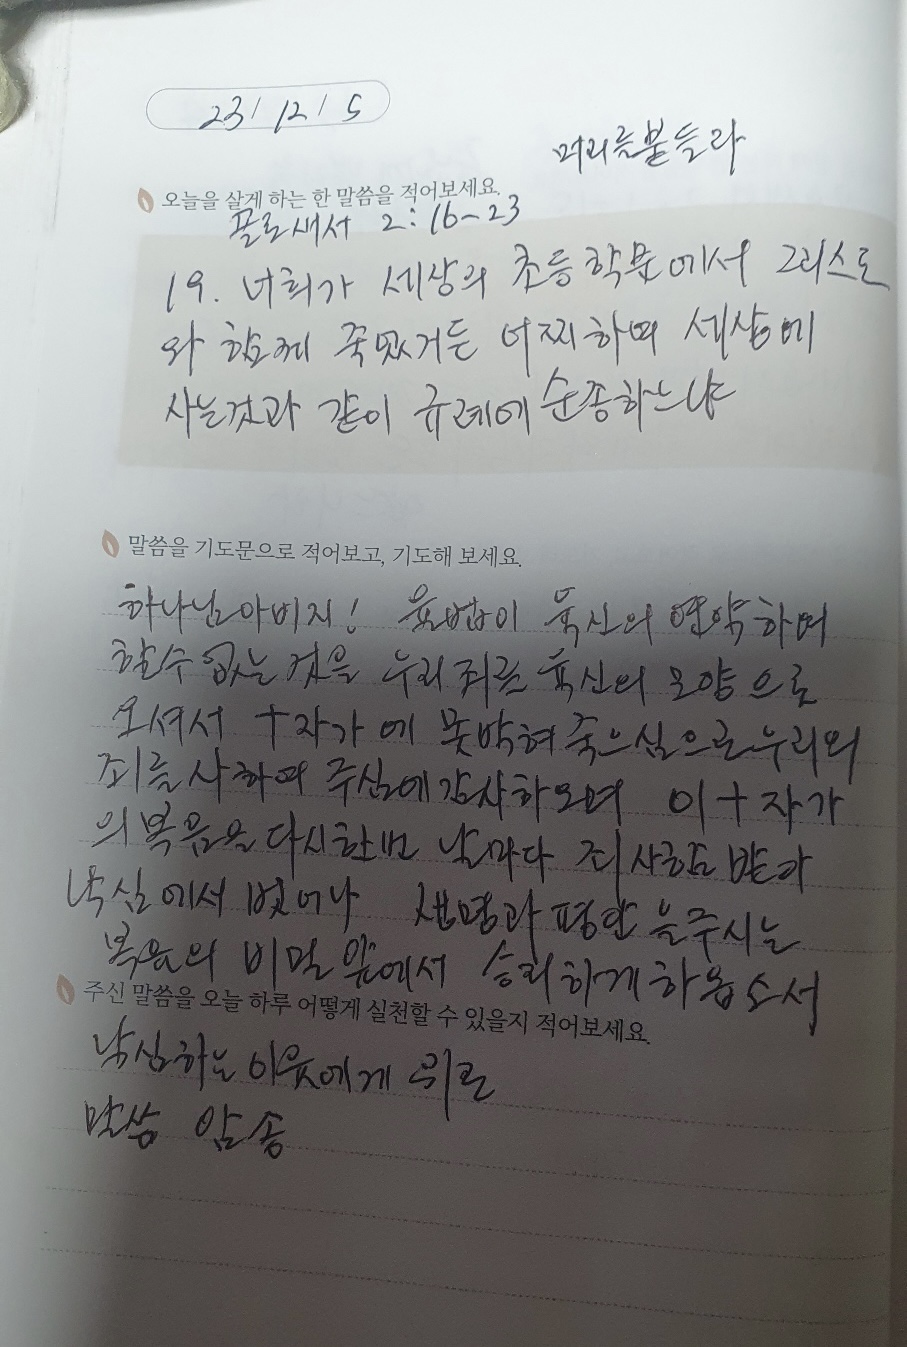 23/12/5
머리를붙들라
오늘을 살게 하는 한 말씀을 적어보세요.
골로새서 2:16-23
19. 너희가 세상의 초등학문에서 그리스도
와 함께 죽었거든 어찌하여 세상에
사는것과 같이 규례에 순종하느냐
말씀을 기도문으로 적어보고, 기도해 보세요.
하나님아버지! 율법이 육신의 연약하여
할수 없는 것을 우리 죄로 육신의 모양으로
오셔서 十자가에 못박혀 죽으심으로 우리의
죄를 사하여 주심에 감사하오며 이 十자가
의 복음을 다시한번 날마다 죄 사함 받아
낙심에서 벗어나 생명과 평안을 주시는
복음의 비밀 앞에서 승리하게 하옵소서
주신 말씀을 오늘 하루 어떻게 실천할 수 있을지 적어보세요.
낙심하는 이웃에게 위로
말씀 암송